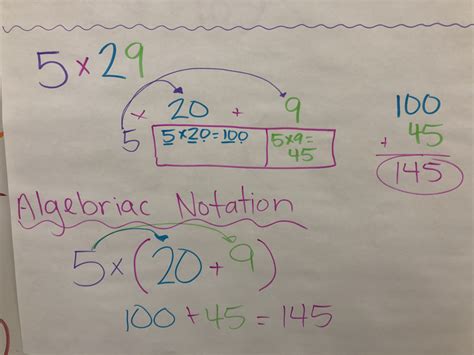 5 × 29
× 20 + 9
5 5×20=100 5×9=
45
100
+ 45
145
Algebriac Notation
5×(20+9)
100 + 45 = 145